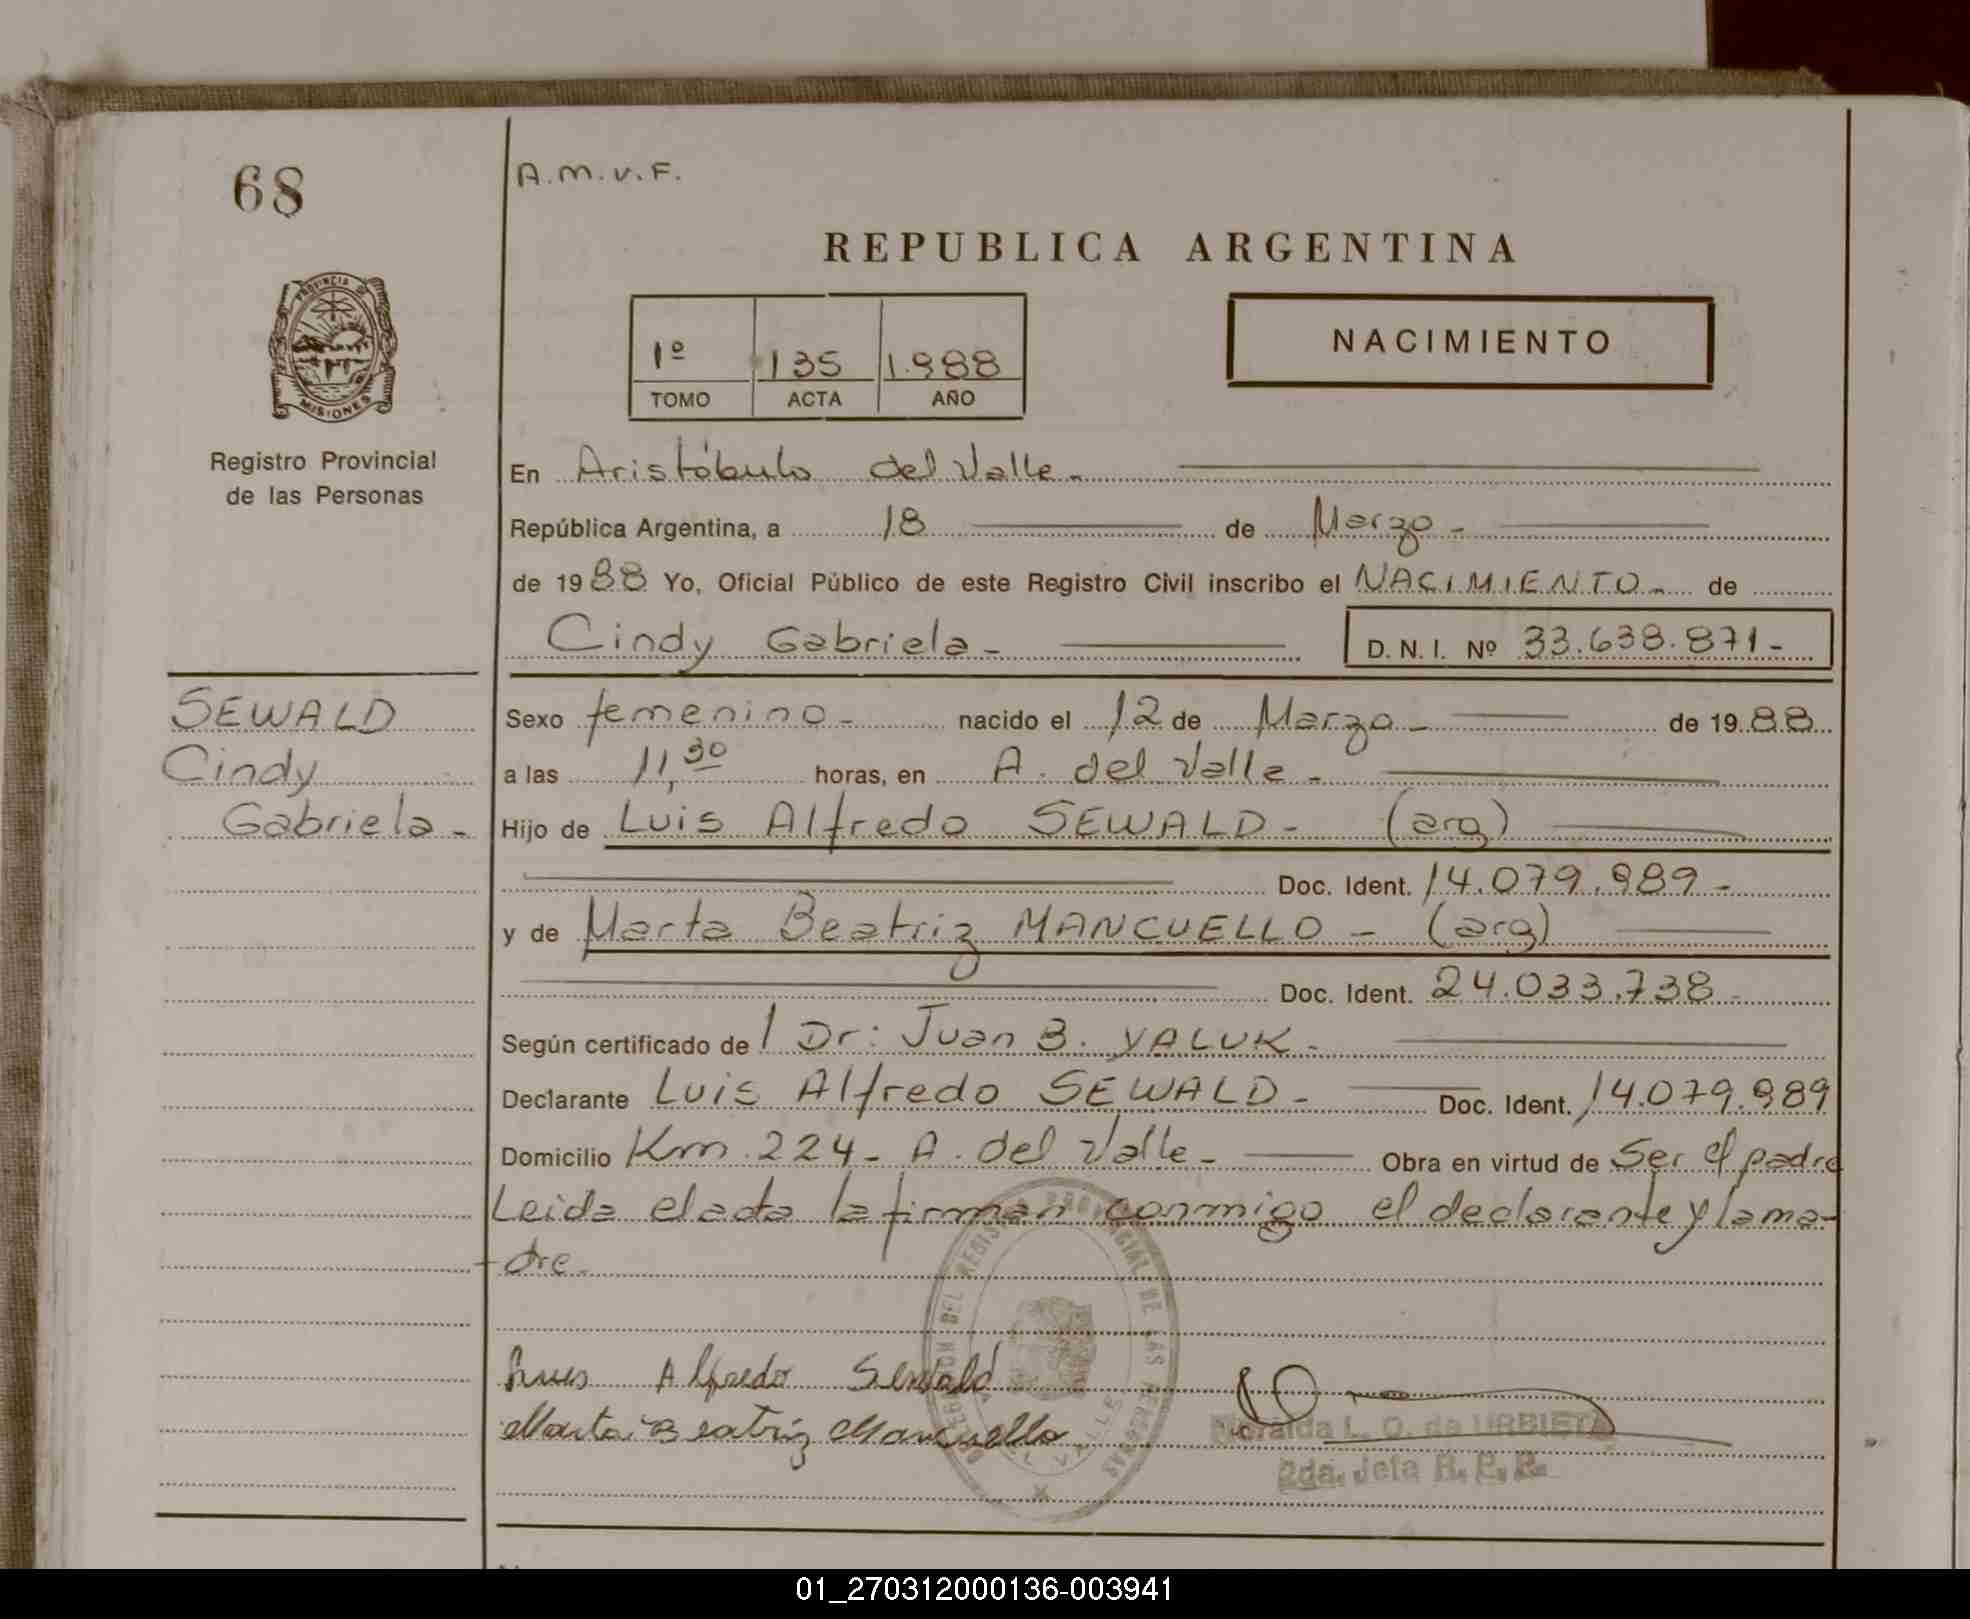 68
A.M.V.F.
REPUBLICA ARGENTINA
PROVINCIA DE
MISIONES
1º 135 1.988
TOMO ACTA AÑO
NACIMIENTO
Registro Provincial
de las Personas
En Aristóbulo del Valle.-
República Argentina, a 18 de Marzo-
de 1988 Yo, Oficial Público de este Registro Civil inscribo el NACIMIENTO- de
Cindy Gabriela- D.N.I. Nº 33.638.871-
SEWALD
Cindy
Gabriela-
Sexo femenino- nacido el 12 de Marzo- de 1988
a las 11,30 horas, en A. del Valle-
Hijo de Luis Alfredo SEWALD- (arg)
Doc. Ident. 14.079.989-
y de Marta Beatriz MANCUELLO- (arg)
Doc. Ident. 24.033.738-
Según certificado de l Dr: Juan B. YALUK-
Declarante Luis Alfredo SEWALD- Doc. Ident. 14.079.989
Domicilio Km 224- A. del Valle- Obra en virtud de Ser el padre
Leida el acta la firman conmigo el declarante y la ma-
dre.
Luis Alfredo Sewald
Marta Beatriz Mancuello
DELEGACION DEL REGISTRO PROVINCIAL DE LAS PERSONAS
L. O. de URBIETA
2da. Jefa R. P. P.
01_270312000136-003941